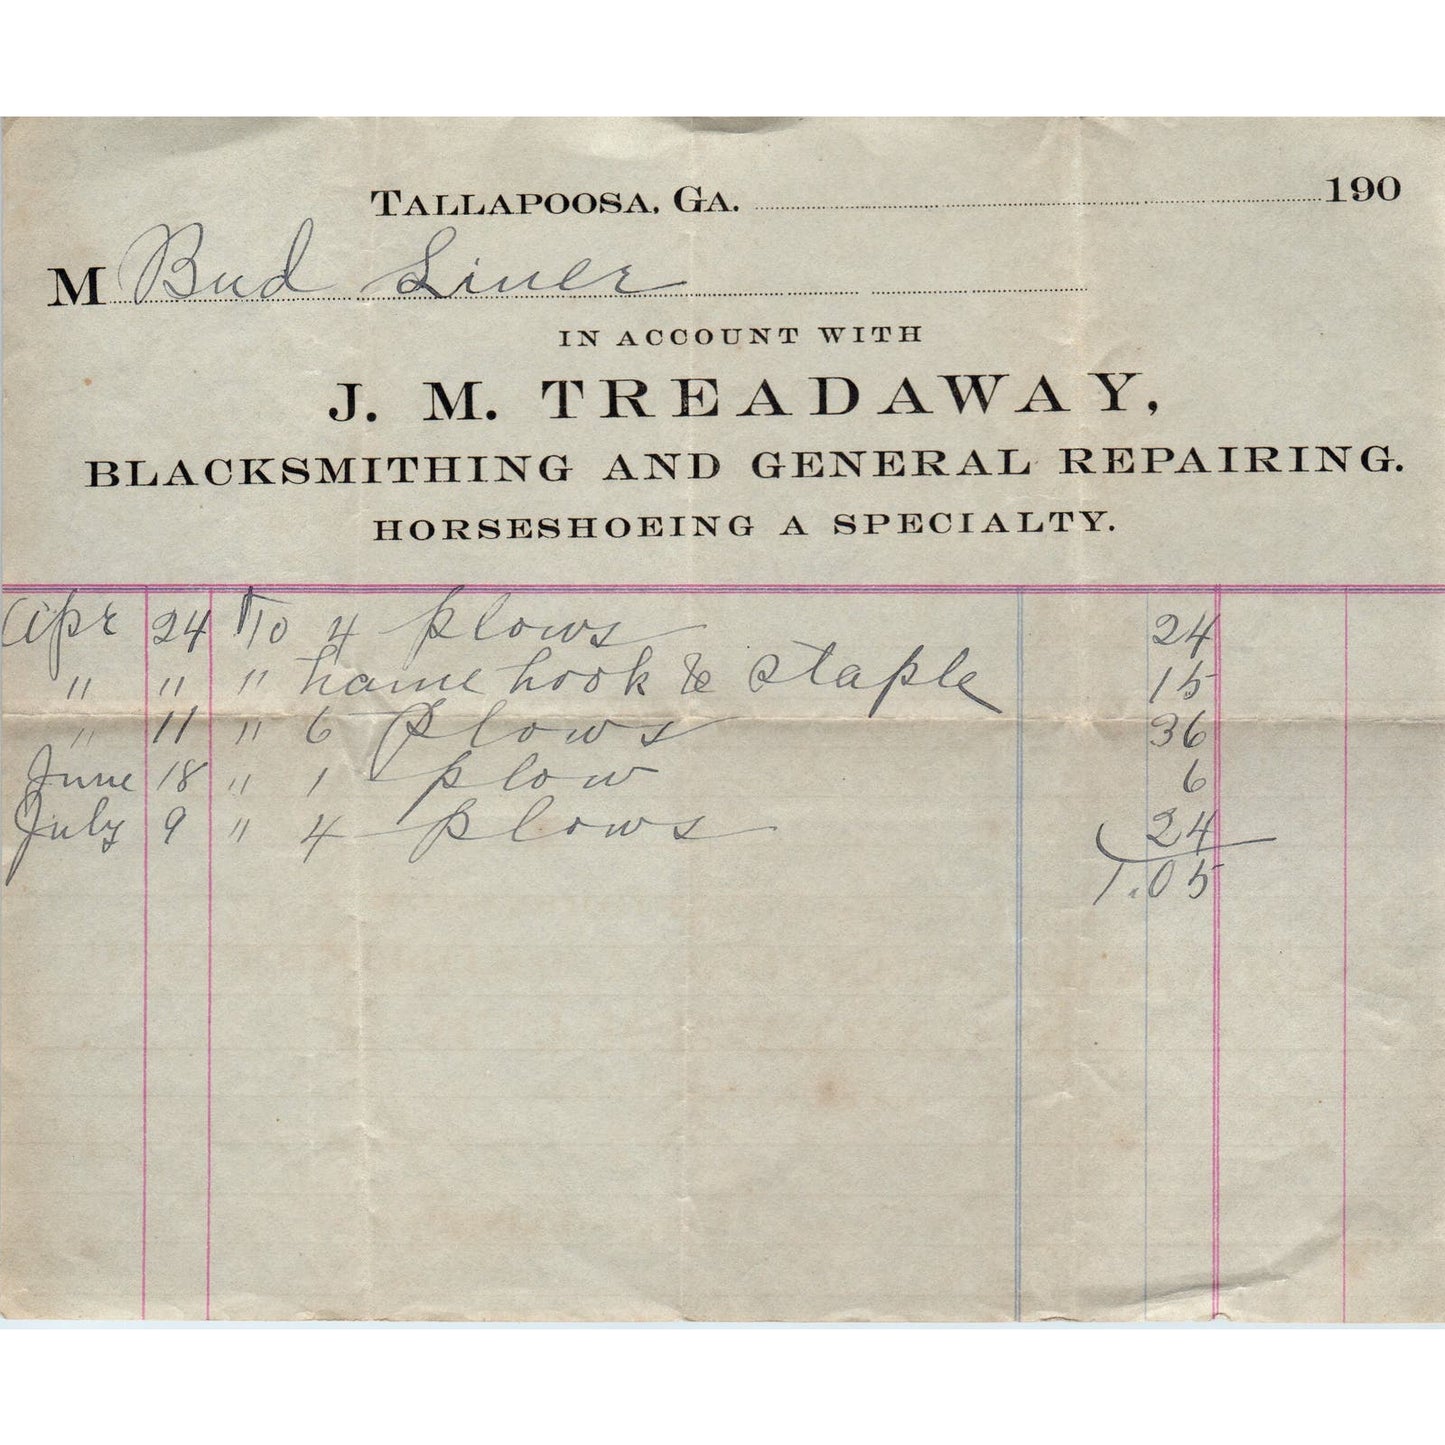 TALLAPOOSA, GA. 190
M Bud Liner
IN ACCOUNT WITH
J. M. TREADAWAY,
BLACKSMITHING AND GENERAL REPAIRING.
HORSESHOEING A SPECIALTY.
Apr 24 To 4 plows 24
" " " hame hook & staple 15
" 11 " 6 plows 36
June 18 " 1 plow 6
July 9 " 4 plows 24
1.05